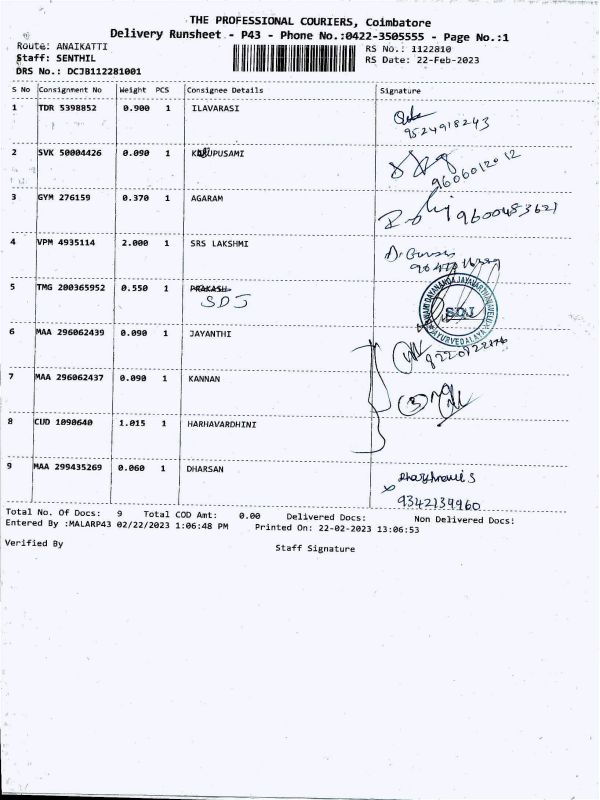 THE PROFESSIONAL COURIERS, Coimbatore
Delivery Runsheet - P43 - Phone No.:0422-3505555 - Page No.:1
Route: ANAIKATTI RS No.: 1122810
Staff: SENTHIL RS Date: 22-Feb-2023
DRS No.: DCJB112281001
S No Consignment No Weight PCS Consignee Details Signature
1 TDR 5398852 0.900 1 ILAVARASI
9524918243
2 SVK 50004426 0.090 1 UPUSAMI
9606012012
3 GYM 276159 0.370 1 AGARAM
9600483621
4 VPM 4935114 2.000 1 SRS LAKSHMI
5 TMG 200365952 0.550 1 PRAKASH
SDJ
SDJ
AYURVEDALAYA
6 MAA 296062439 0.090 1 JAYANTHI
7 MAA 296062437 0.090 1 KANNAN
3
8 CUD 1090640 1.015 1 HARHAVARDHINI
9 MAA 299435269 0.060 1 DHARSAN
9342139960
Total No. Of Docs: 9 Total COD Amt: 0.00 Delivered Docs: Non Delivered Docs:
Entered By :MALARP43 02/22/2023 1:06:48 PM Printed On: 22-02-2023 13:06:53
Verified By Staff Signature